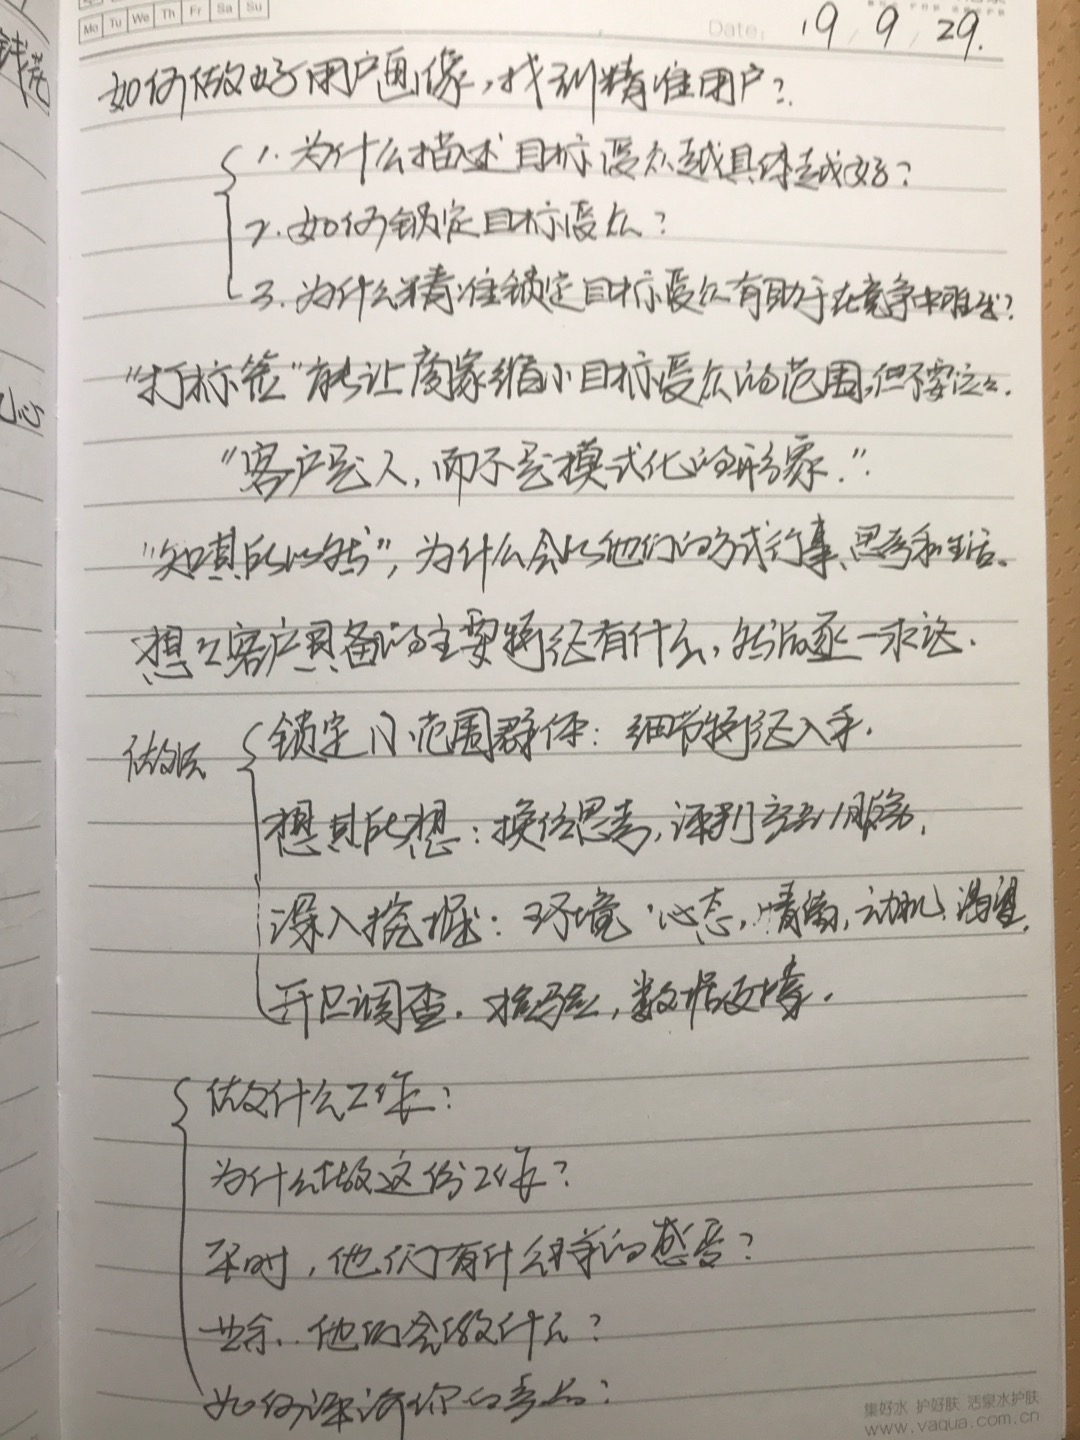 钱花
心
Mo Tu We Th Fr Sa Su
Date: 19/9/29.
如何做好用户画像,找到精准用户?
1. 为什么描述目标受众越具体越好?
2. 如何锁定目标受众?
3. 为什么精准锁定目标受众有助于在竞争中胜出?
“打标签”能让商家缩小目标受众的范围,但不要泛化.
“客户是人,而不是模式化的形象.”
“知其所以然”,为什么会以他们的方式行事、思考和生活。
想想客户具备的主要特征有什么,然后逐一求证.
做法
锁定小范围群体: 细节特征入手.
想其所想: 换位思考,评判产品/服务.
深入挖掘: 环境、心态,情绪,动机、渴望.
开展调查. 检验,数据支撑.
做什么工作?
为什么做这份工作?
平时,他们有什么样的感受?
业余..他们会做什么?
如何评价你的产品?
集好水 护好肤 活泉水护肤
www.vaqua.com.cn